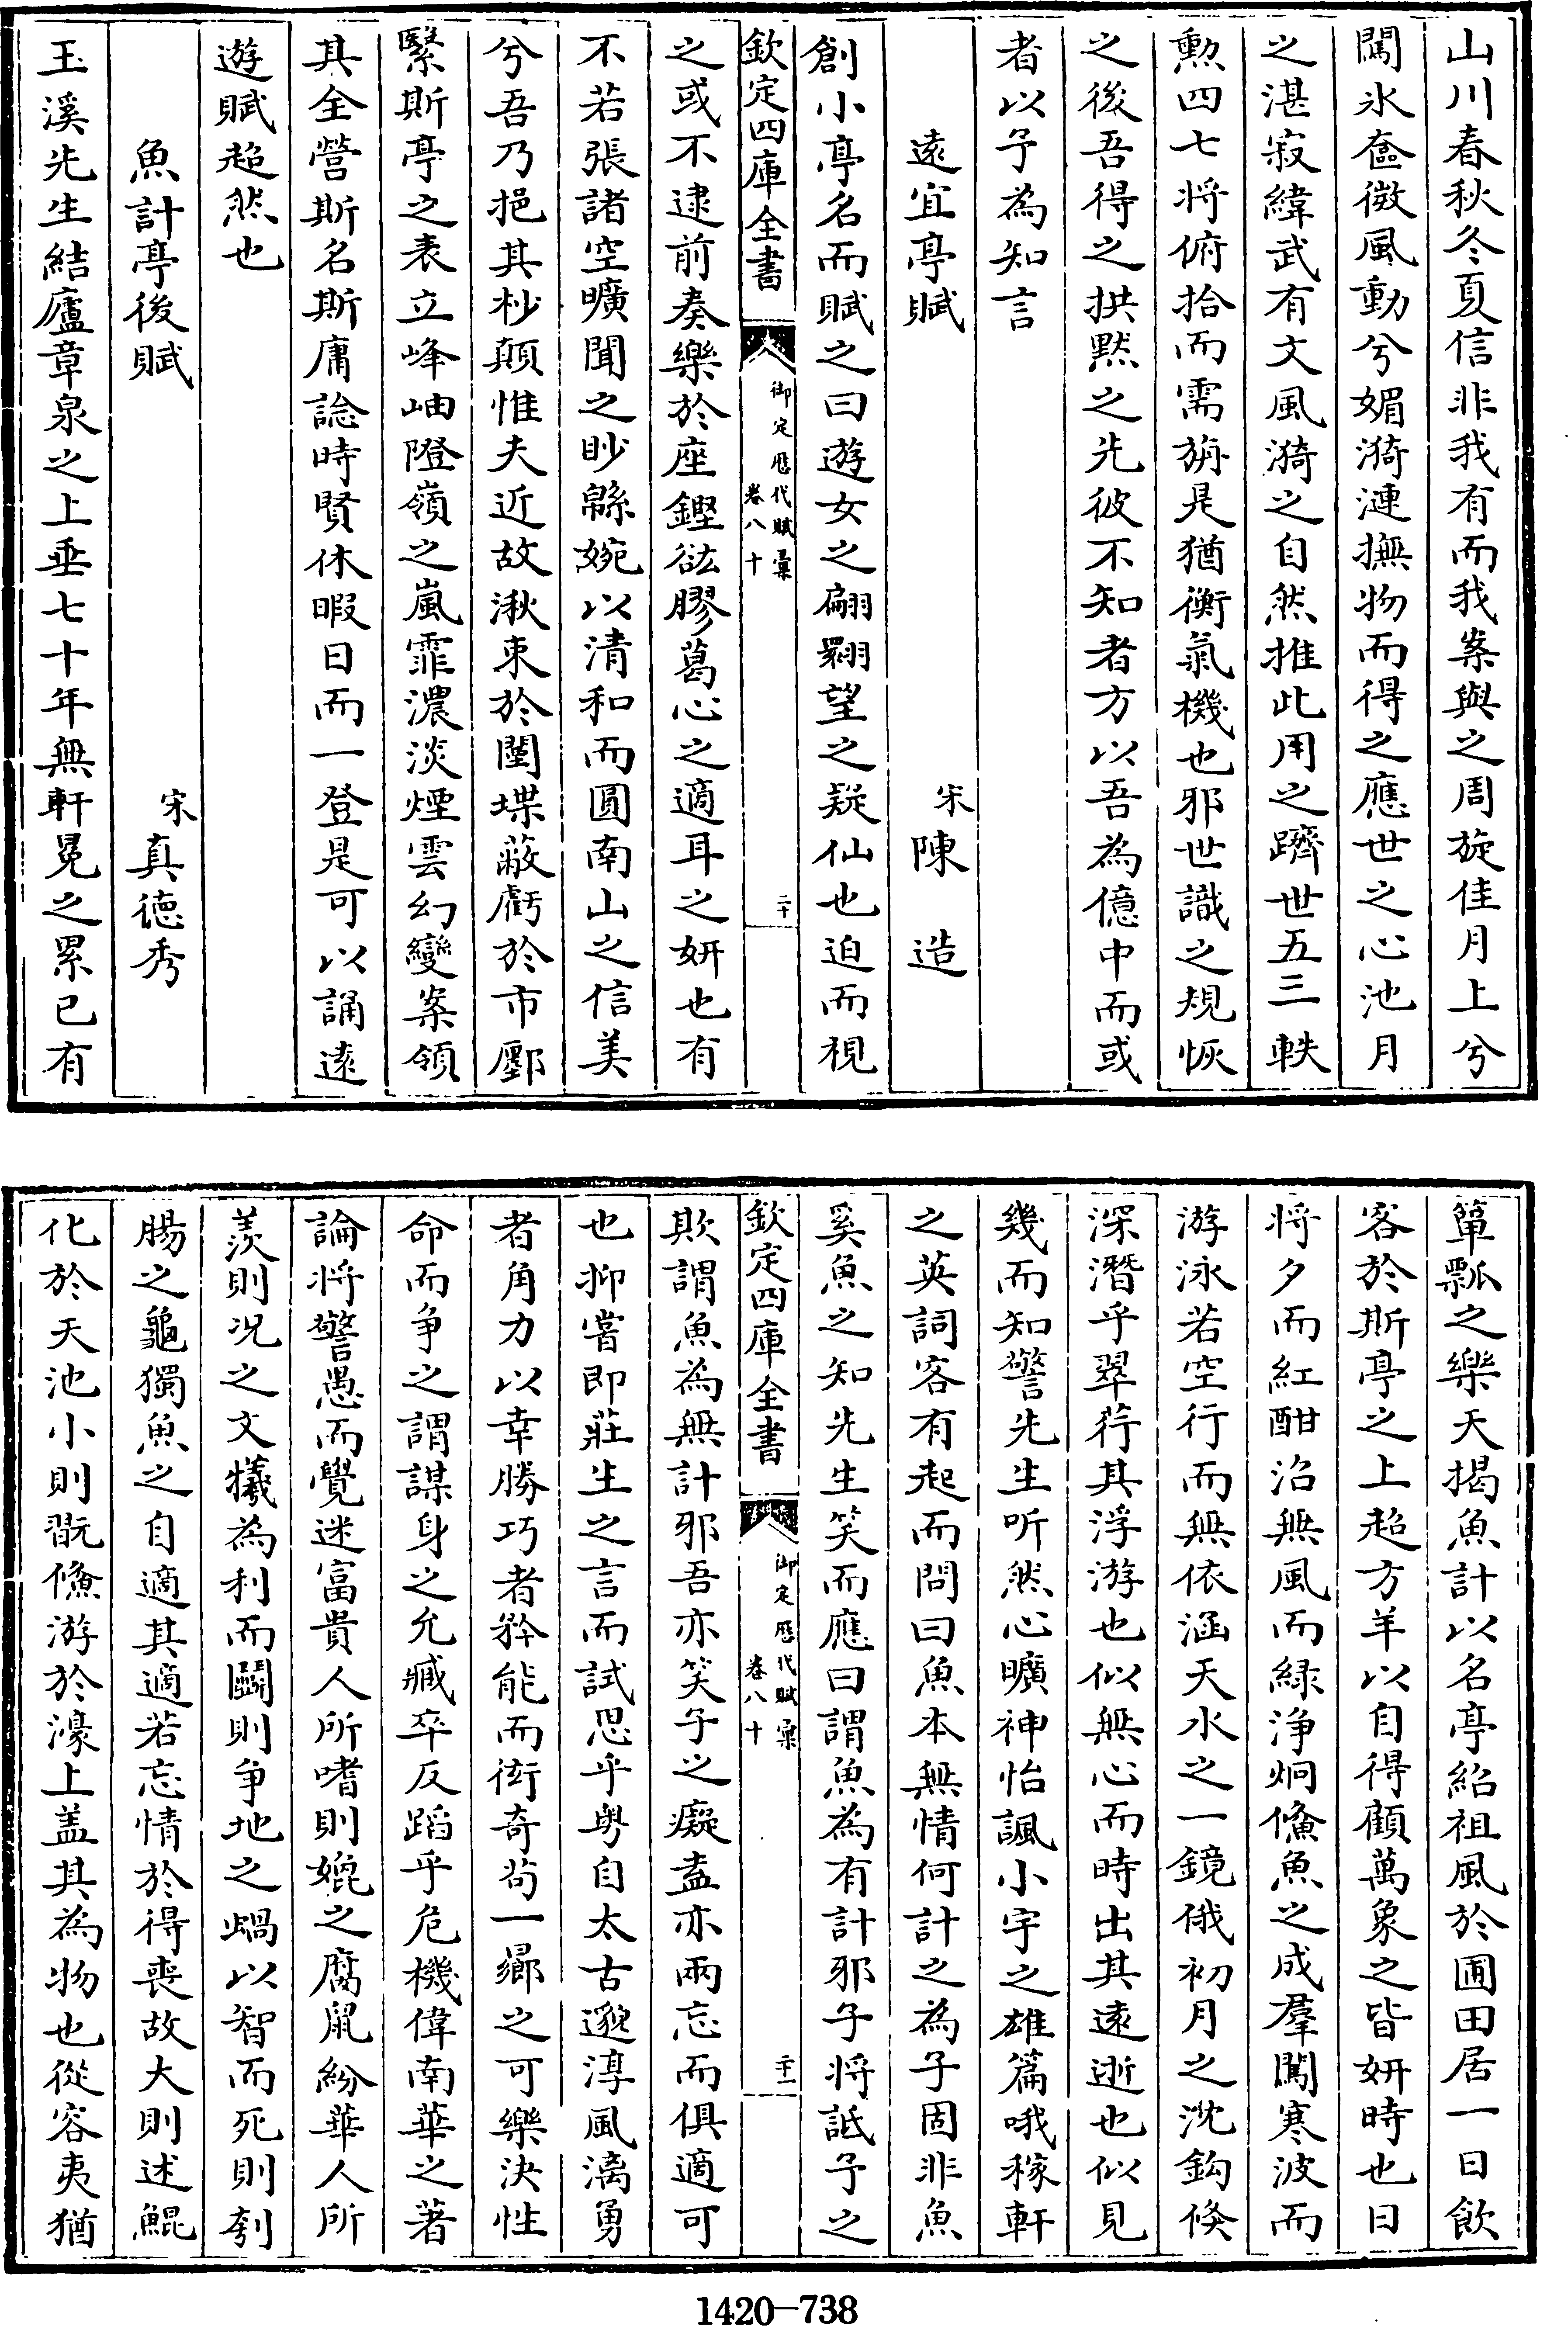 山川春秋冬夏信非我有而我案與之周旋佳月上兮
闖氷奩微風動兮媚漪漣撫物而得之應世之心池月
之湛寂緯武有文風漪之自然推此用之躋世五三軼
勲四七将俯拾而需旃是猶衡氣機也邪世識之規恢
之後吾得之拱黙之先彼不知者方以吾為億中而或
者以予為知言
遠宜亭賦
宋陳造
創小亭名而賦之曰遊女之翩翾望之疑仙也迫而視
欽定四庫全書
御定歴代賦彙
卷八十
二十
之或不逮前奏樂於座鏗鈜膠葛心之適耳之妍也有
不若張諸空曠聞之眇緜婉以清和而圓南山之信美
兮吾乃挹其杪顛惟夫近故湫束於闉堞蔽虧於市鄽
繄斯亭之表立峰岫隥嶺之嵐霏濃淡煙雲幻變案領
其全營斯名斯庸諗時賢休暇日而一登是可以誦遠
遊賦超然也
魚計亭後賦
宋真德秀
玉溪先生結廬章泉之上垂七十年無軒冕之累已有
簞瓢之樂天揭魚計以名亭紹祖風於圃田居一日飲
客於斯亭之上超方羊以自得顧萬象之皆妍時也日
将夕而紅酣沿無風而緑浄炯鯈魚之成羣闖寒波而
游泳若空行而無依涵天水之一鏡俄初月之沈鈎倐
深潛乎翠荇其浮游也似無心而時出其遠逝也似見
幾而知警先生听然心曠神怡諷小宇之雄篇哦稼軒
之英詞客有起而問曰魚本無情何計之為子固非魚
奚魚之知先生笑而應曰謂魚為有計邪子将詆予之
欽定四庫全書
御定歴代賦彙
卷八十
二十一
欺謂魚為無計邪吾亦笑子之癡盍亦兩忘而俱適可
也抑嘗即莊生之言而試思乎粤自太古邈淳風漓勇
者角力以幸勝巧者矜能而衒奇茍一鄉之可樂決性
命而争之謂謀身之允臧卒反蹈乎危機偉南華之著
論将警愚而覺迷富貴人所嗜則媲之腐鼠紛華人所
羡則况之文犧為利而鬭則争地之蝸以智而死則刳
腸之龜獨魚之自適其適若忘情於得喪故大則述鯤
化於天池小則翫鯈游於濠上盖其為物也從容夷猶
1420—738